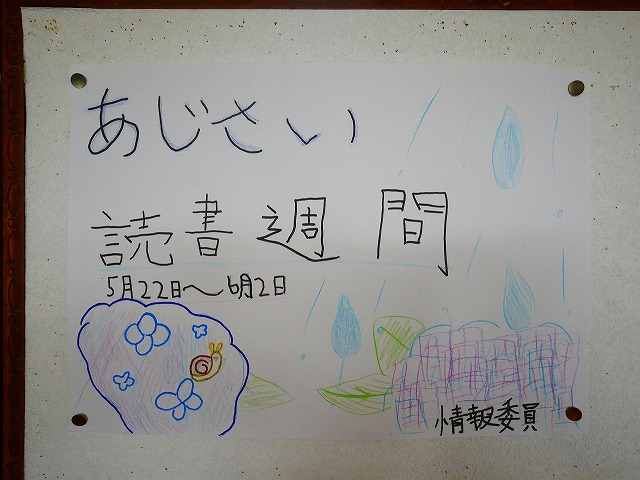 あじさい
読書週間
5月22日〜6月2日
情報委員